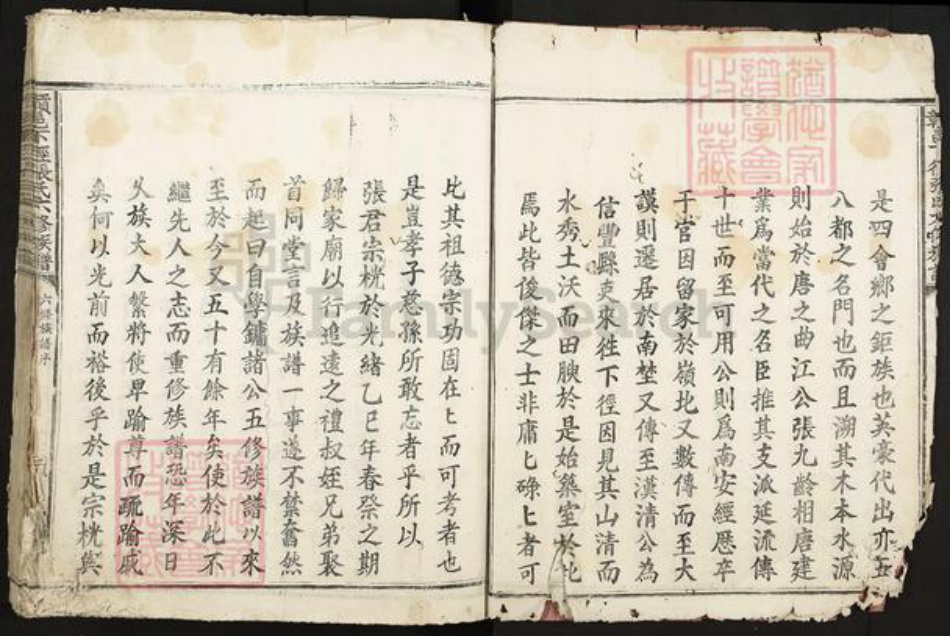 是四會鄉之鉅族也英豪代出亦五
八都之名門也而且溯其木本水源
則始於唐之曲江公張九齡相唐建
業爲當代之名臣推其支派延流傳
十世而至可用公則爲南安經歷卒
于官因留家於嶺北又數傳而至大
謨則遷居於南埜又傳至漢清公爲
信豐縣吏來徃下徑因見其山清而
水秀土沃而田腴於是始築室於此
焉此皆俊傑之士非庸匕碌匕者可
比其祖德宗功固在匕而可考者也
是豈孝子慈孫所敢忘者乎所以
張君宗桄於光緒乙巳年春祭之期
歸家廟以行追遠之禮叔姪兄弟聚
首同堂言及族譜一事遂不禁奮然
而起曰自學鏞諸公五修族譜以來
至於今又五十有餘年矣使於此不
繼先人之志而重修族譜恐年深日
乆族大人繁將使卑踰尊而疏踰戚
矣何以光前而裕後乎於是宗桄與
下徑張氏六修族譜
六修族譜序
FamilySearch